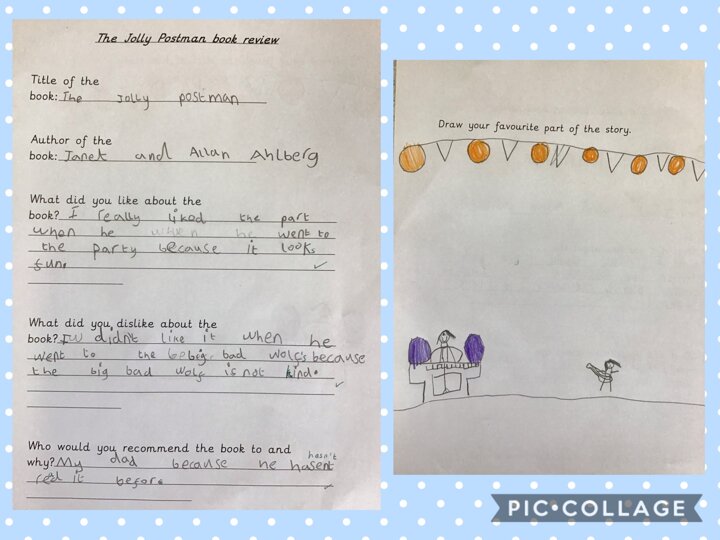 The Jolly Postman book review
Title of the
book: The Jolly postman
Author of the
book: Janet and Allan Ahlberg
What did you like about the
book? I really liked the part
when he when he went to
the party because it looks
fun.
What did you dislike about the
book? I didn't like it when he
went to the big bad wolf's because
the big bad wolf is not kind.
Who would you recommend the book to and
hasn't
why? My dad because he hasent
red it before
Draw your favourite part of the story.
PIC•COLLAGE